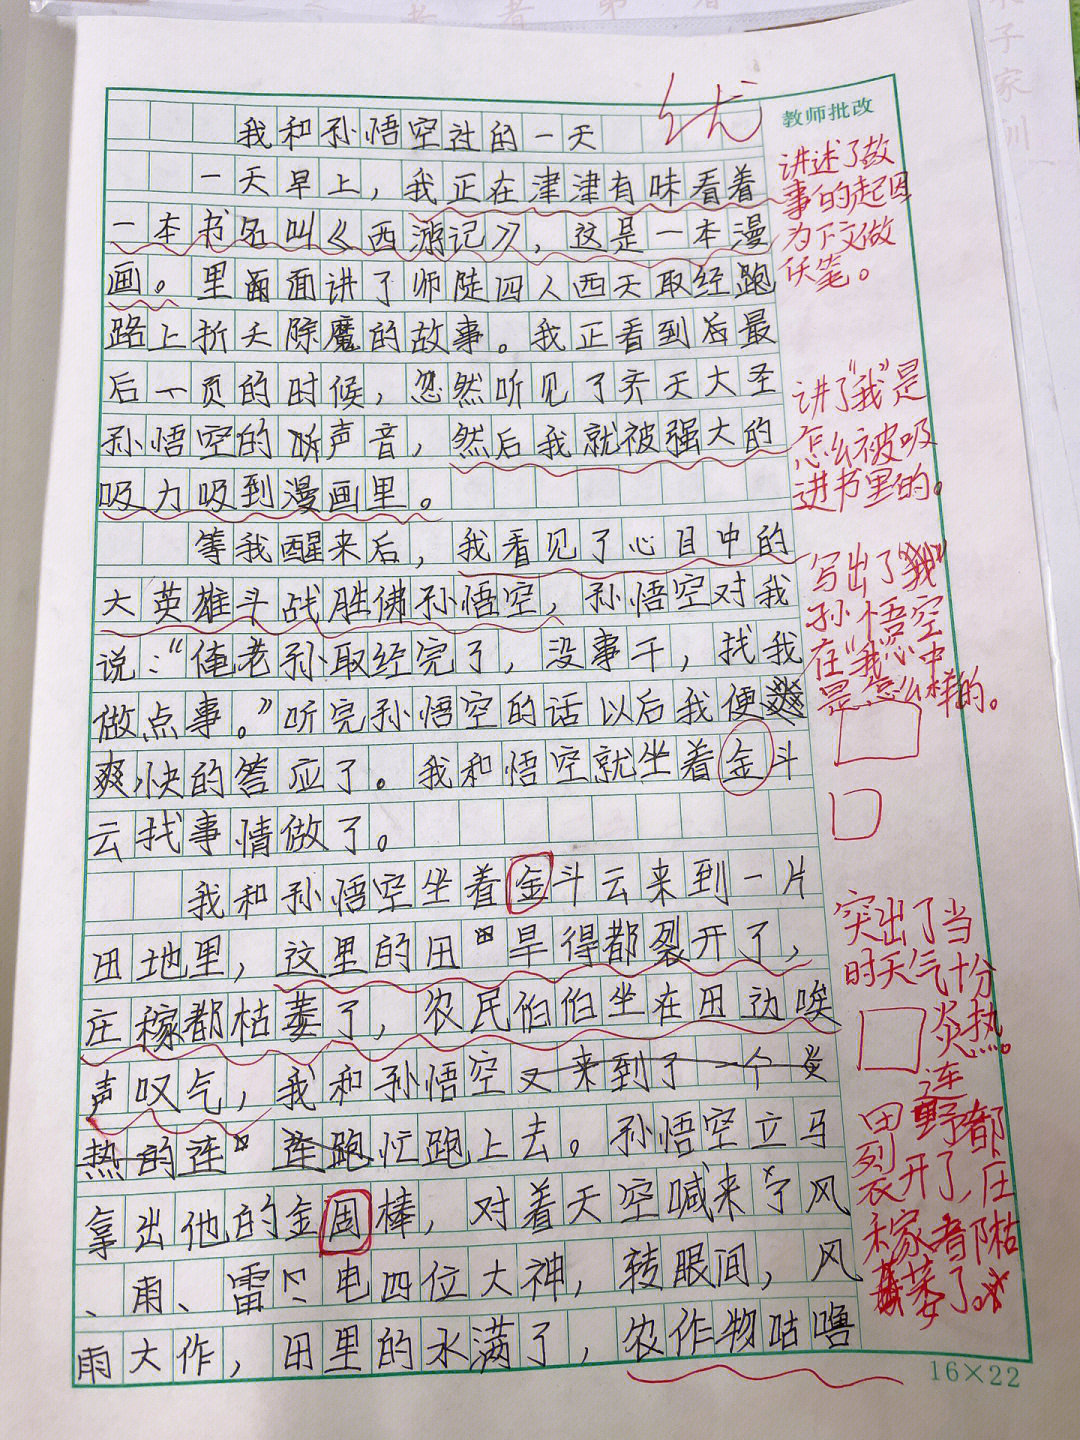 优
教师批改
我和孙悟空过的一天
一天早上，我正在津津有味看着
一本书名叫《西游记》，这是一本漫
画。里面面讲了师陡四人西天取经跑
路上折夭除魔的故事。我正看到后最
后一页的时候，忽然听见了齐天大圣
孙悟空的声音，然后我就被强大的
吸力吸到漫画里。
等我醒来后，我看见了心目中的
大英雄斗战胜佛孙悟空，孙悟空对我
说：“俺老孙取经完了，没事干，找我
做点事。”听完孙悟空的话以后我便
爽快的答应了。我和悟空就坐着金斗
云找事情做了。
我和孙悟空坐着金斗云来到一片
田地里，这里的田旱得都裂开了，
庄稼都枯萎了，农民伯伯坐在田边唉
声叹气，我和孙悟空又来到了一个炎
热的连连跑忙跑上去。孙悟空立马
拿出他的金固棒，对着天空喊来了风
、雨、雷、电四位大神，转眼间，风
雨大作，田里的水满了，农作物咕噜
讲述了故
事的起因
为下文做
伏笔。
讲了“我”是
怎么被吸
进书里的。
写出了“我”
孙悟空
在“我”心中
是怎么样的。
突出了当
时天气十分
炎热。
连
田野都
裂开了，庄
稼都枯
萎了。
16×22